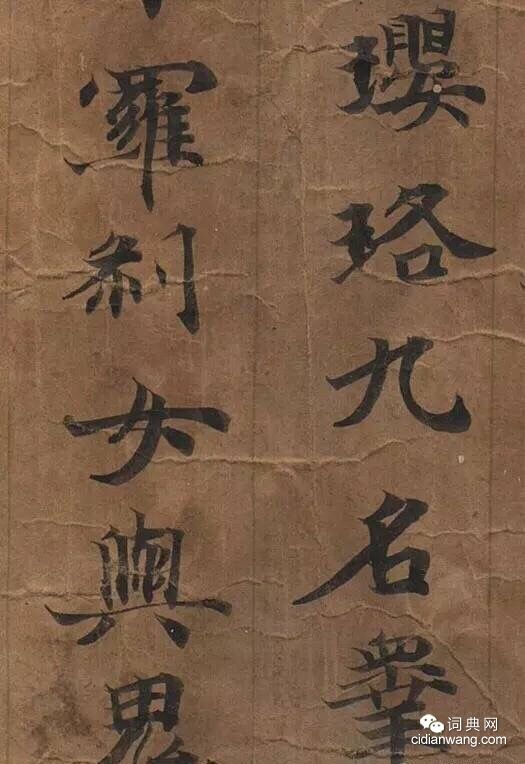 瓔珞九名睪
羅刹女與鬼
词典网
cidianwang.com